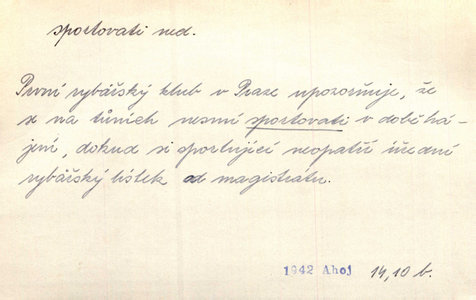 sportovati ned.
První rybářský klub v Praze upozorňuje, že
se na tůních nesmí sportovati v době há-
jení, dokud si sportující neopatří úřední
rybářský lístek od magistrátu.
1942 Ahoj 14, 10 b.